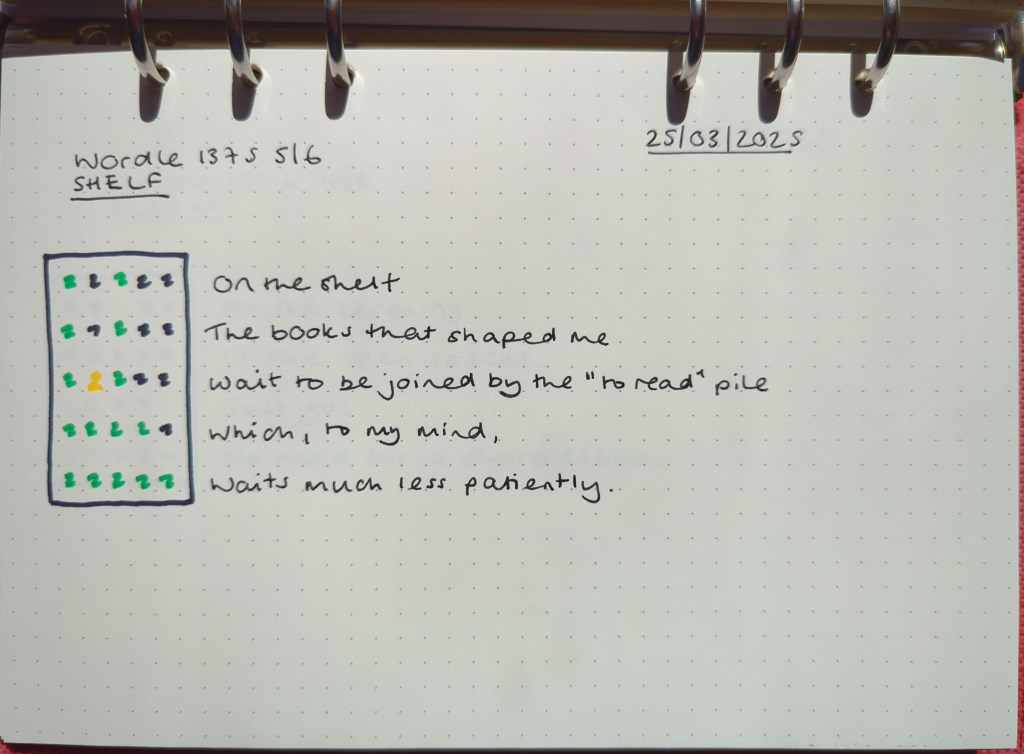 Wordle 1375 5/6
25/03/2025
SHELF
On the shelf
The books that shaped me
Wait to be joined by the "to read" pile
Which, to my mind,
Waits much less patiently.